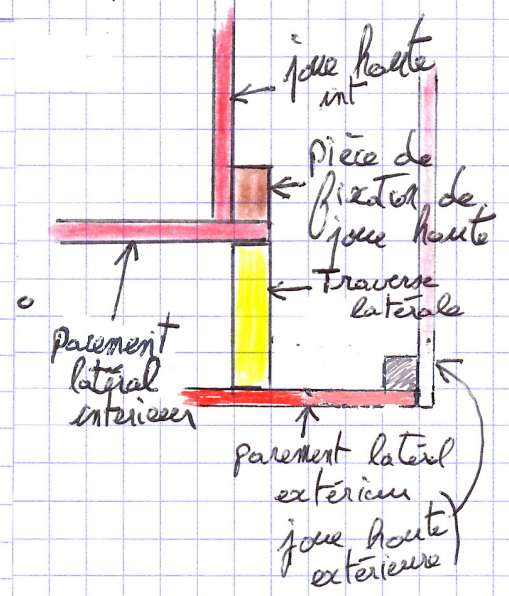 joue haute
int
pièce de
fixation de
joue haute
Traverse
latérale
parement
latéral
interieur
parement latéral
extérieur
joue haute
extérieure